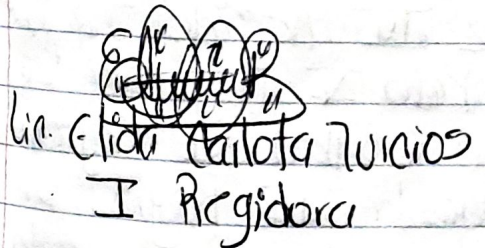 Lic. Elida Carlota Zuicios
I Regidora